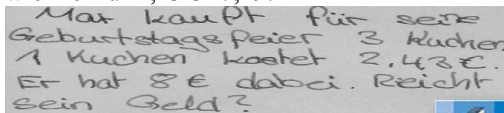 Max kauft für seine
Geburtstagsfeier 3 Kuchen
1 Kuchen kostet 2,43€.
Er hat 8 € dabei. Reicht
sein Geld?